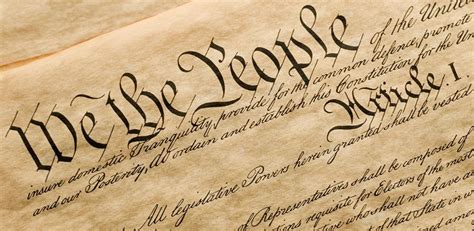 We the People of the United
insure domestic Tranquility, provide for the common defence, promote
and our Posterity, do ordain and establish this Constitution for the Uni
Article I.
All legislative Powers herein granted shall be vested
of Representatives shall be composed of
itions requisite for Electors of the most
tive who shall not have
of that State in